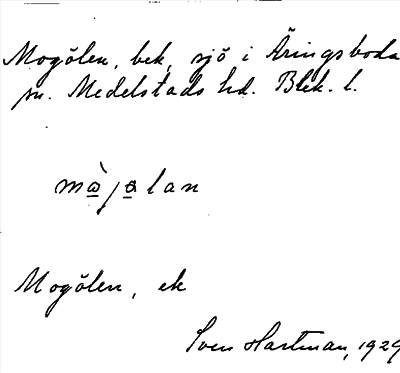 Mogölen, bek, sjö i Äringsboda
sn. Medelstads hd. Blek. l.
Mogölen, ek
Sven Hartman, 1929